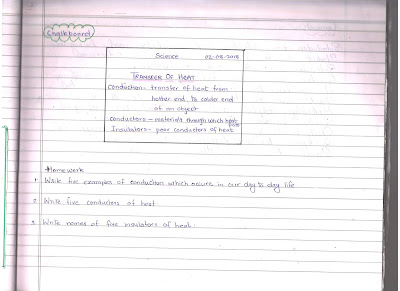 Chalkboard
Science 02-08-2018
TRANSFER OF HEAT
Conduction - transfer of heat from
hotter end to colder end
of an object
Conductors - materials through which heat
pass
Insulators - poor conductors of heat
Homework
1. Write five examples of conduction which occurs in our day to day life
2. Write five conductors of heat
3. Write names of five insulators of heat.